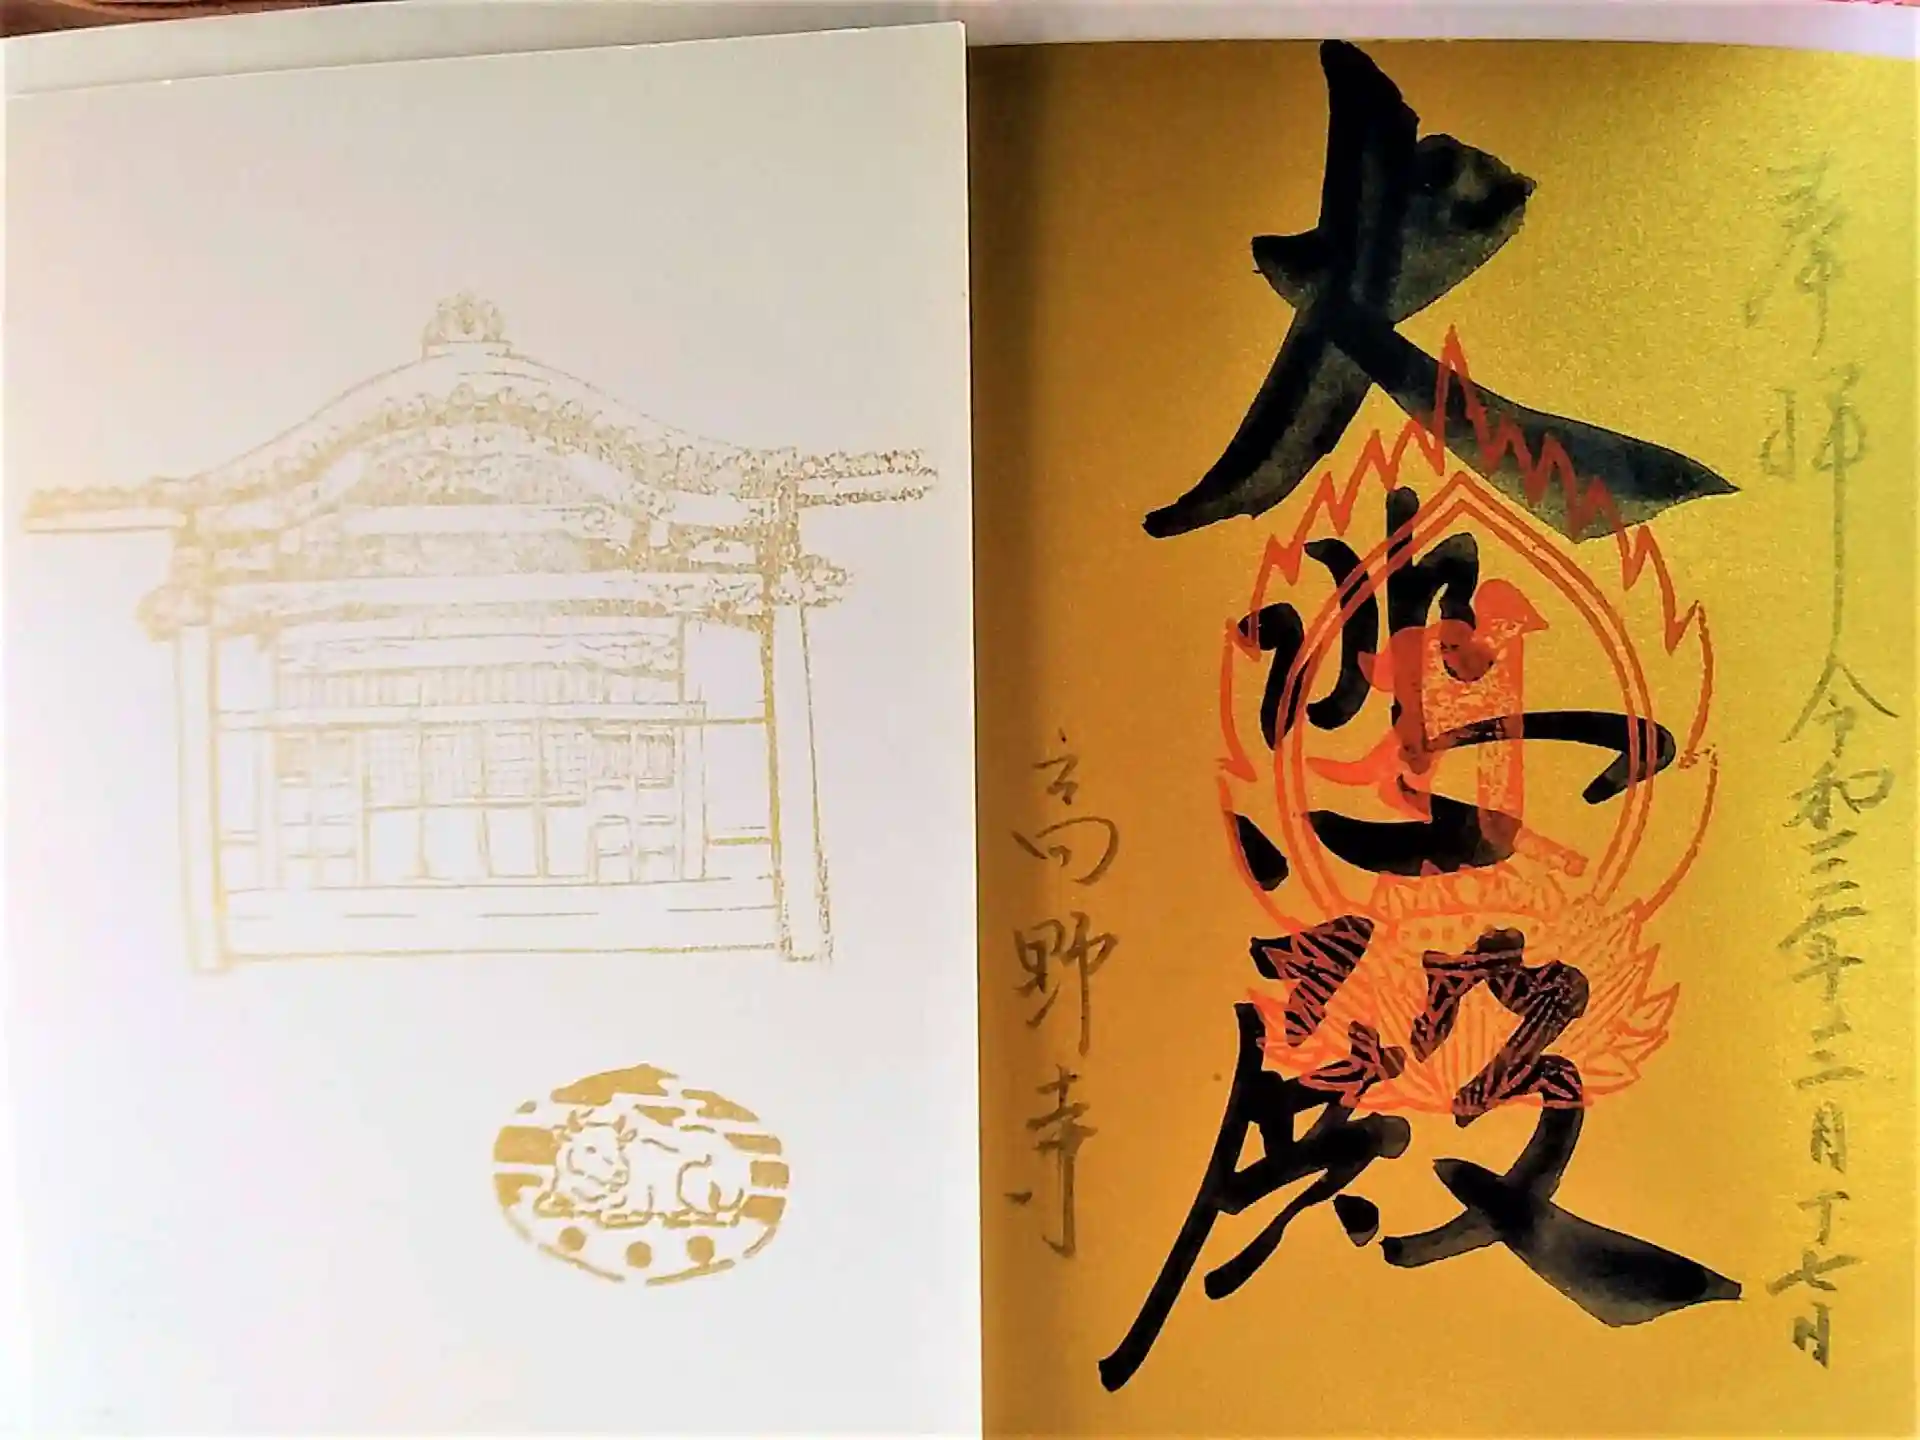 奉拝 令和三年十二月十七日
大悲殿
高野寺